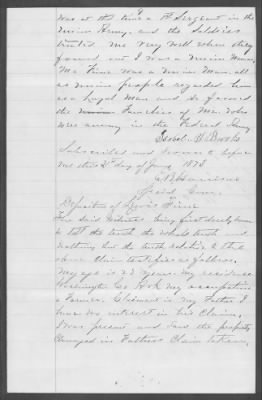 was at the time a Sergent in the
Union Army, and the Soldiers
treated me very well when they
found out I was a Union Man.
Mr Fine was a Union Man all
us Union people regarded him
as a Loyal Man and he favored
the Families of Men who
were away in the Federal Army
Isobel. Brooks
Subscribed and sworn to before
me this 21st day of June 1873
Harrison
Speid Com.
Deposition of Lewis Fine
The Said Witness being first duly sworn
to tell the truth the whole truth and
nothing but the truth relating to the
above Claim testifies as follows.
My age is 23 years. my residence
Washington Co Ark my occupation
a Farmer. Claimant is my Father. I
have no interest in his Claim.
I was present and saw the property
Charged in Fathers Claim taken.